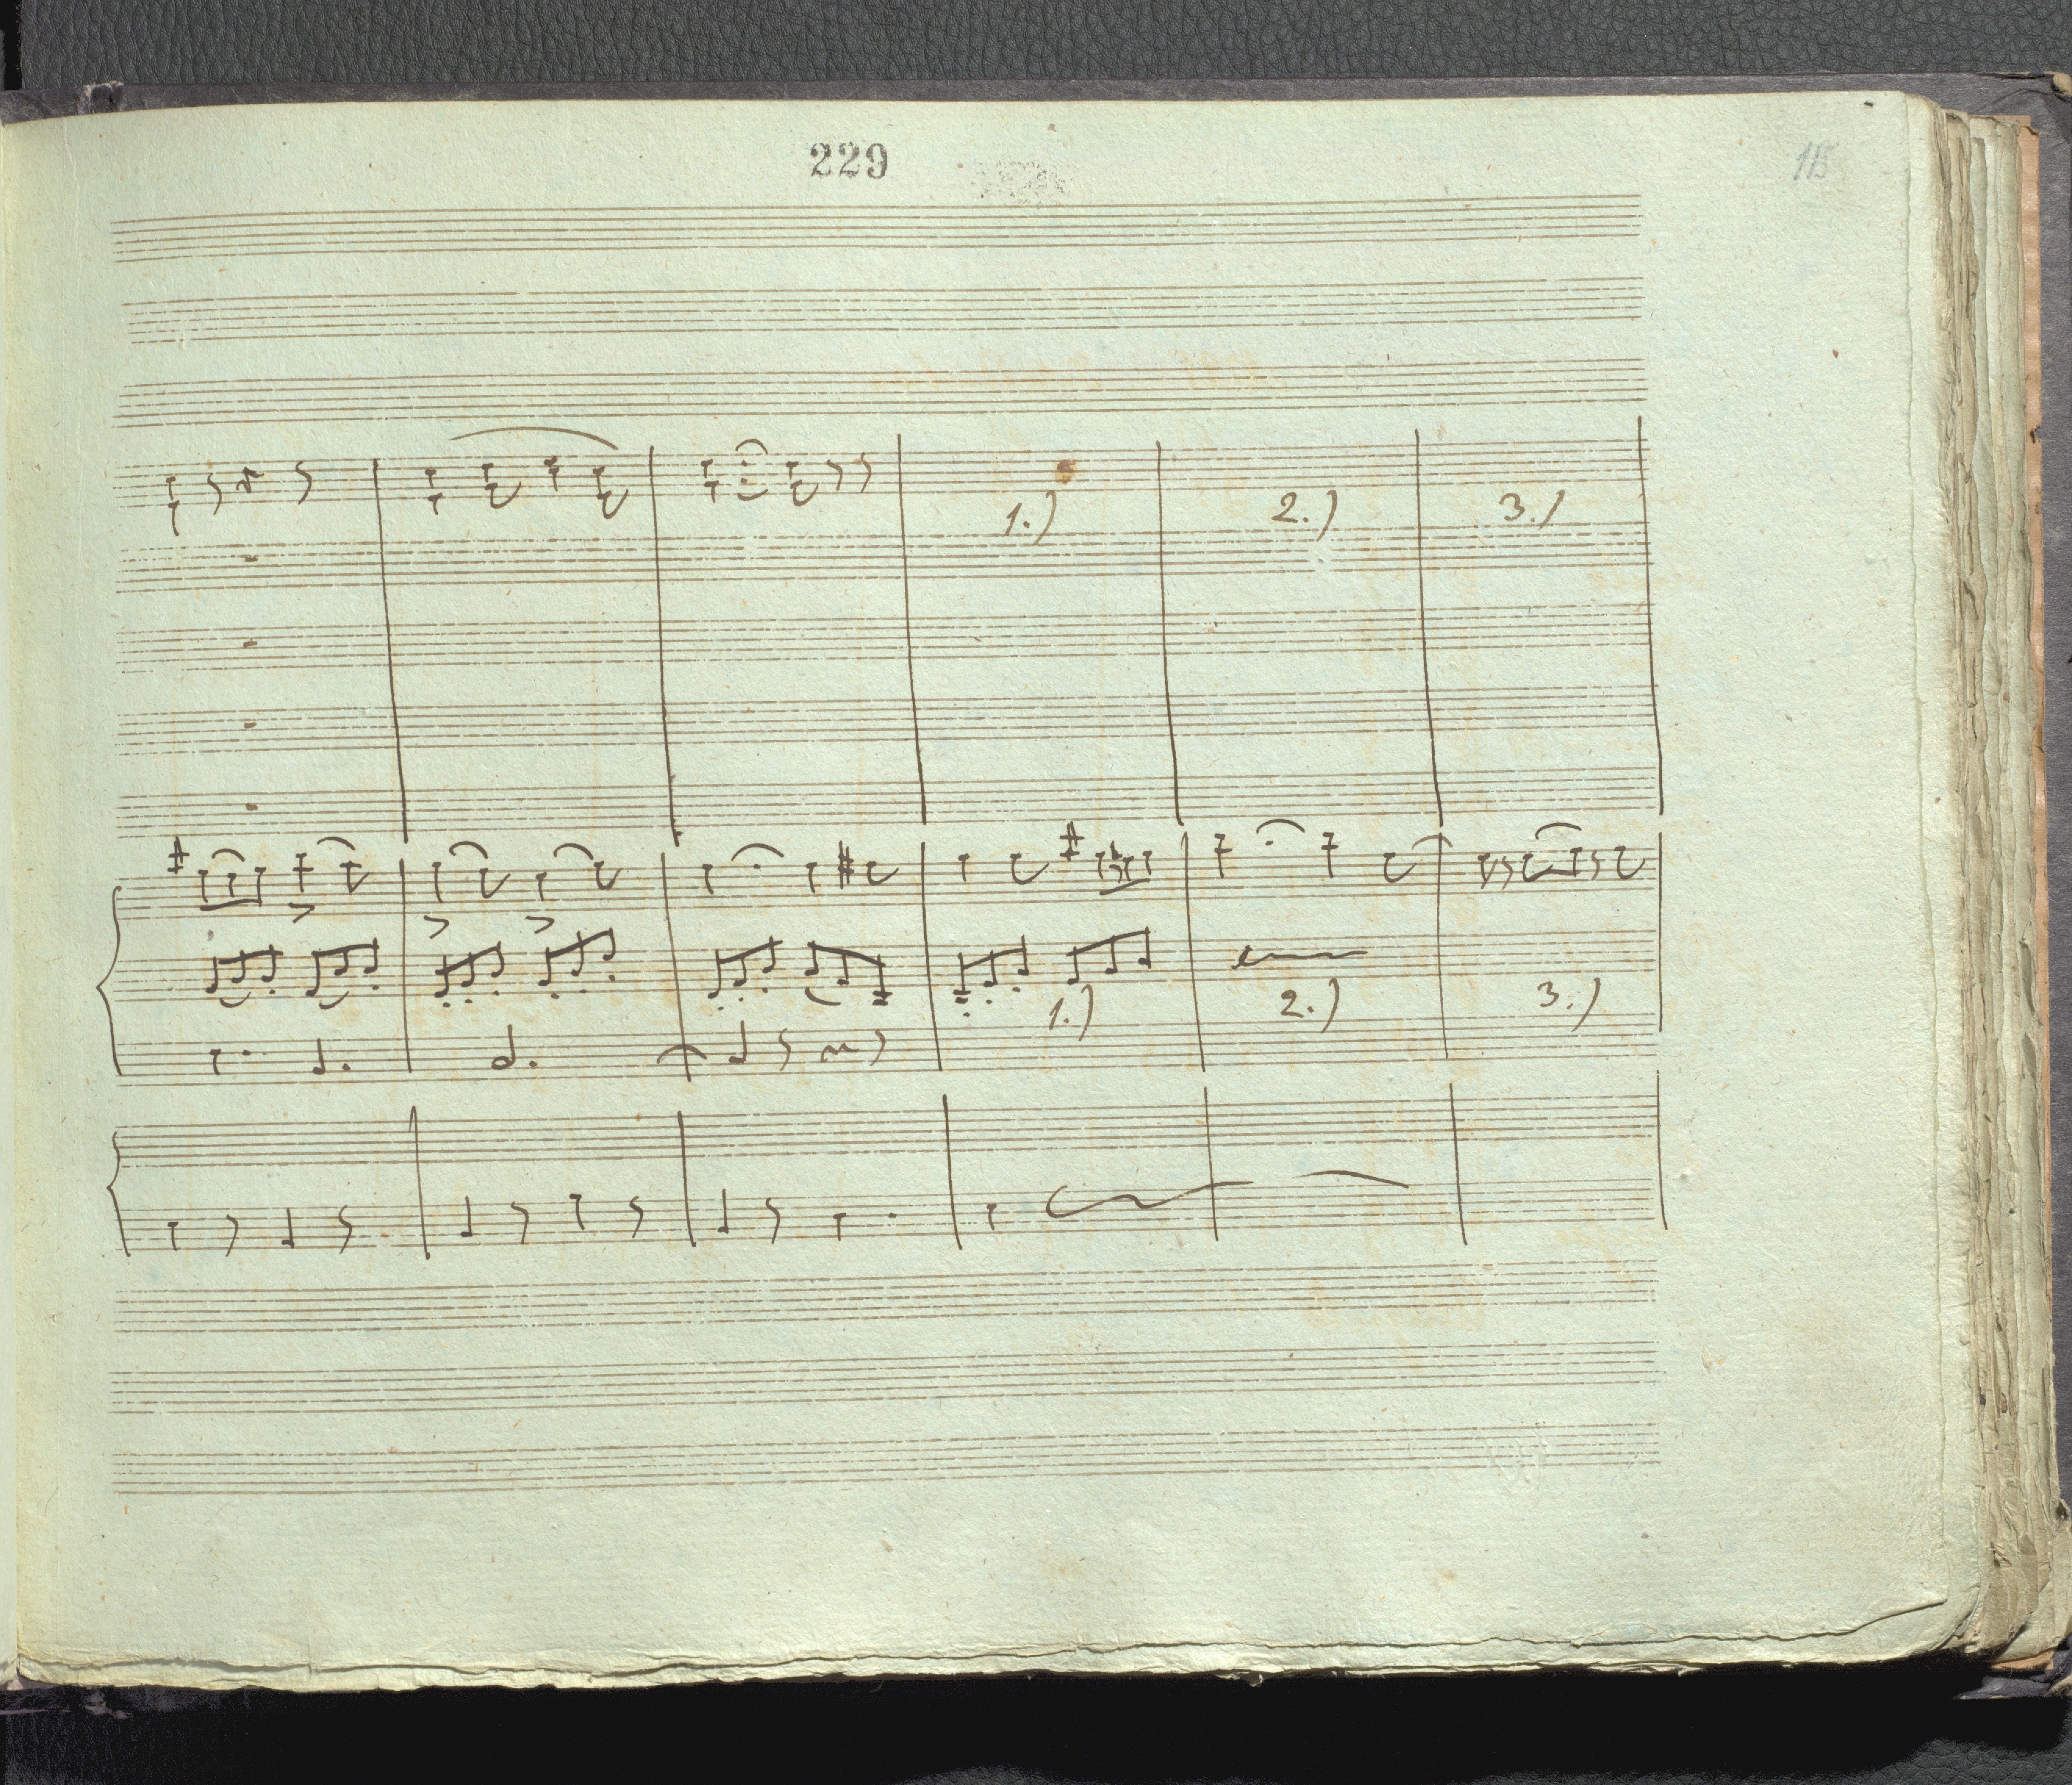 229
115
1.) 2.) 3.)
1.) 2.) 3.)